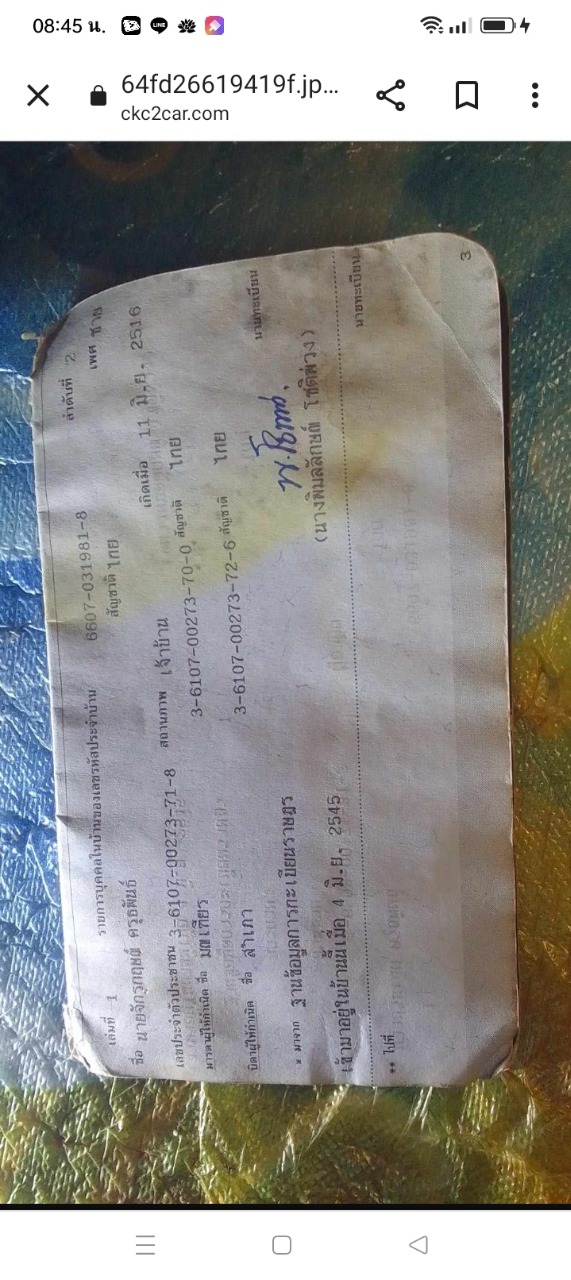 08:45 น.
64fd26619419f.jp...
ckc2car.com
เล่มที่ 1 รายการบุคคลในบ้านของเลขรหัสประจำบ้าน 6607-031981-8 ลำดับที่ 2
ชื่อ นายจักรกฤษณ์ ครุธพันธ์ สัญชาติ ไทย เพศ ชาย
เลขประจำตัวประชาชน 3-6107-00273-71-8 สถานภาพ เจ้าบ้าน เกิดเมื่อ 11 มิ.ย. 2516
มารดาผู้ให้กำเนิด ชื่อ มณเฑียร 3-6107-00273-70-0 สัญชาติ ไทย
บิดาผู้ให้กำเนิด ชื่อ สำเภา 3-6107-00273-72-6 สัญชาติ ไทย
* มาจาก ฐานข้อมูลการทะเบียนราษฎร นายทะเบียน
เข้ามาอยู่ในบ้านนี้เมื่อ 4 มิ.ย. 2545 (นางพิมลลักษณ์ โชติพวง)
** ไปที่ นายทะเบียน
3